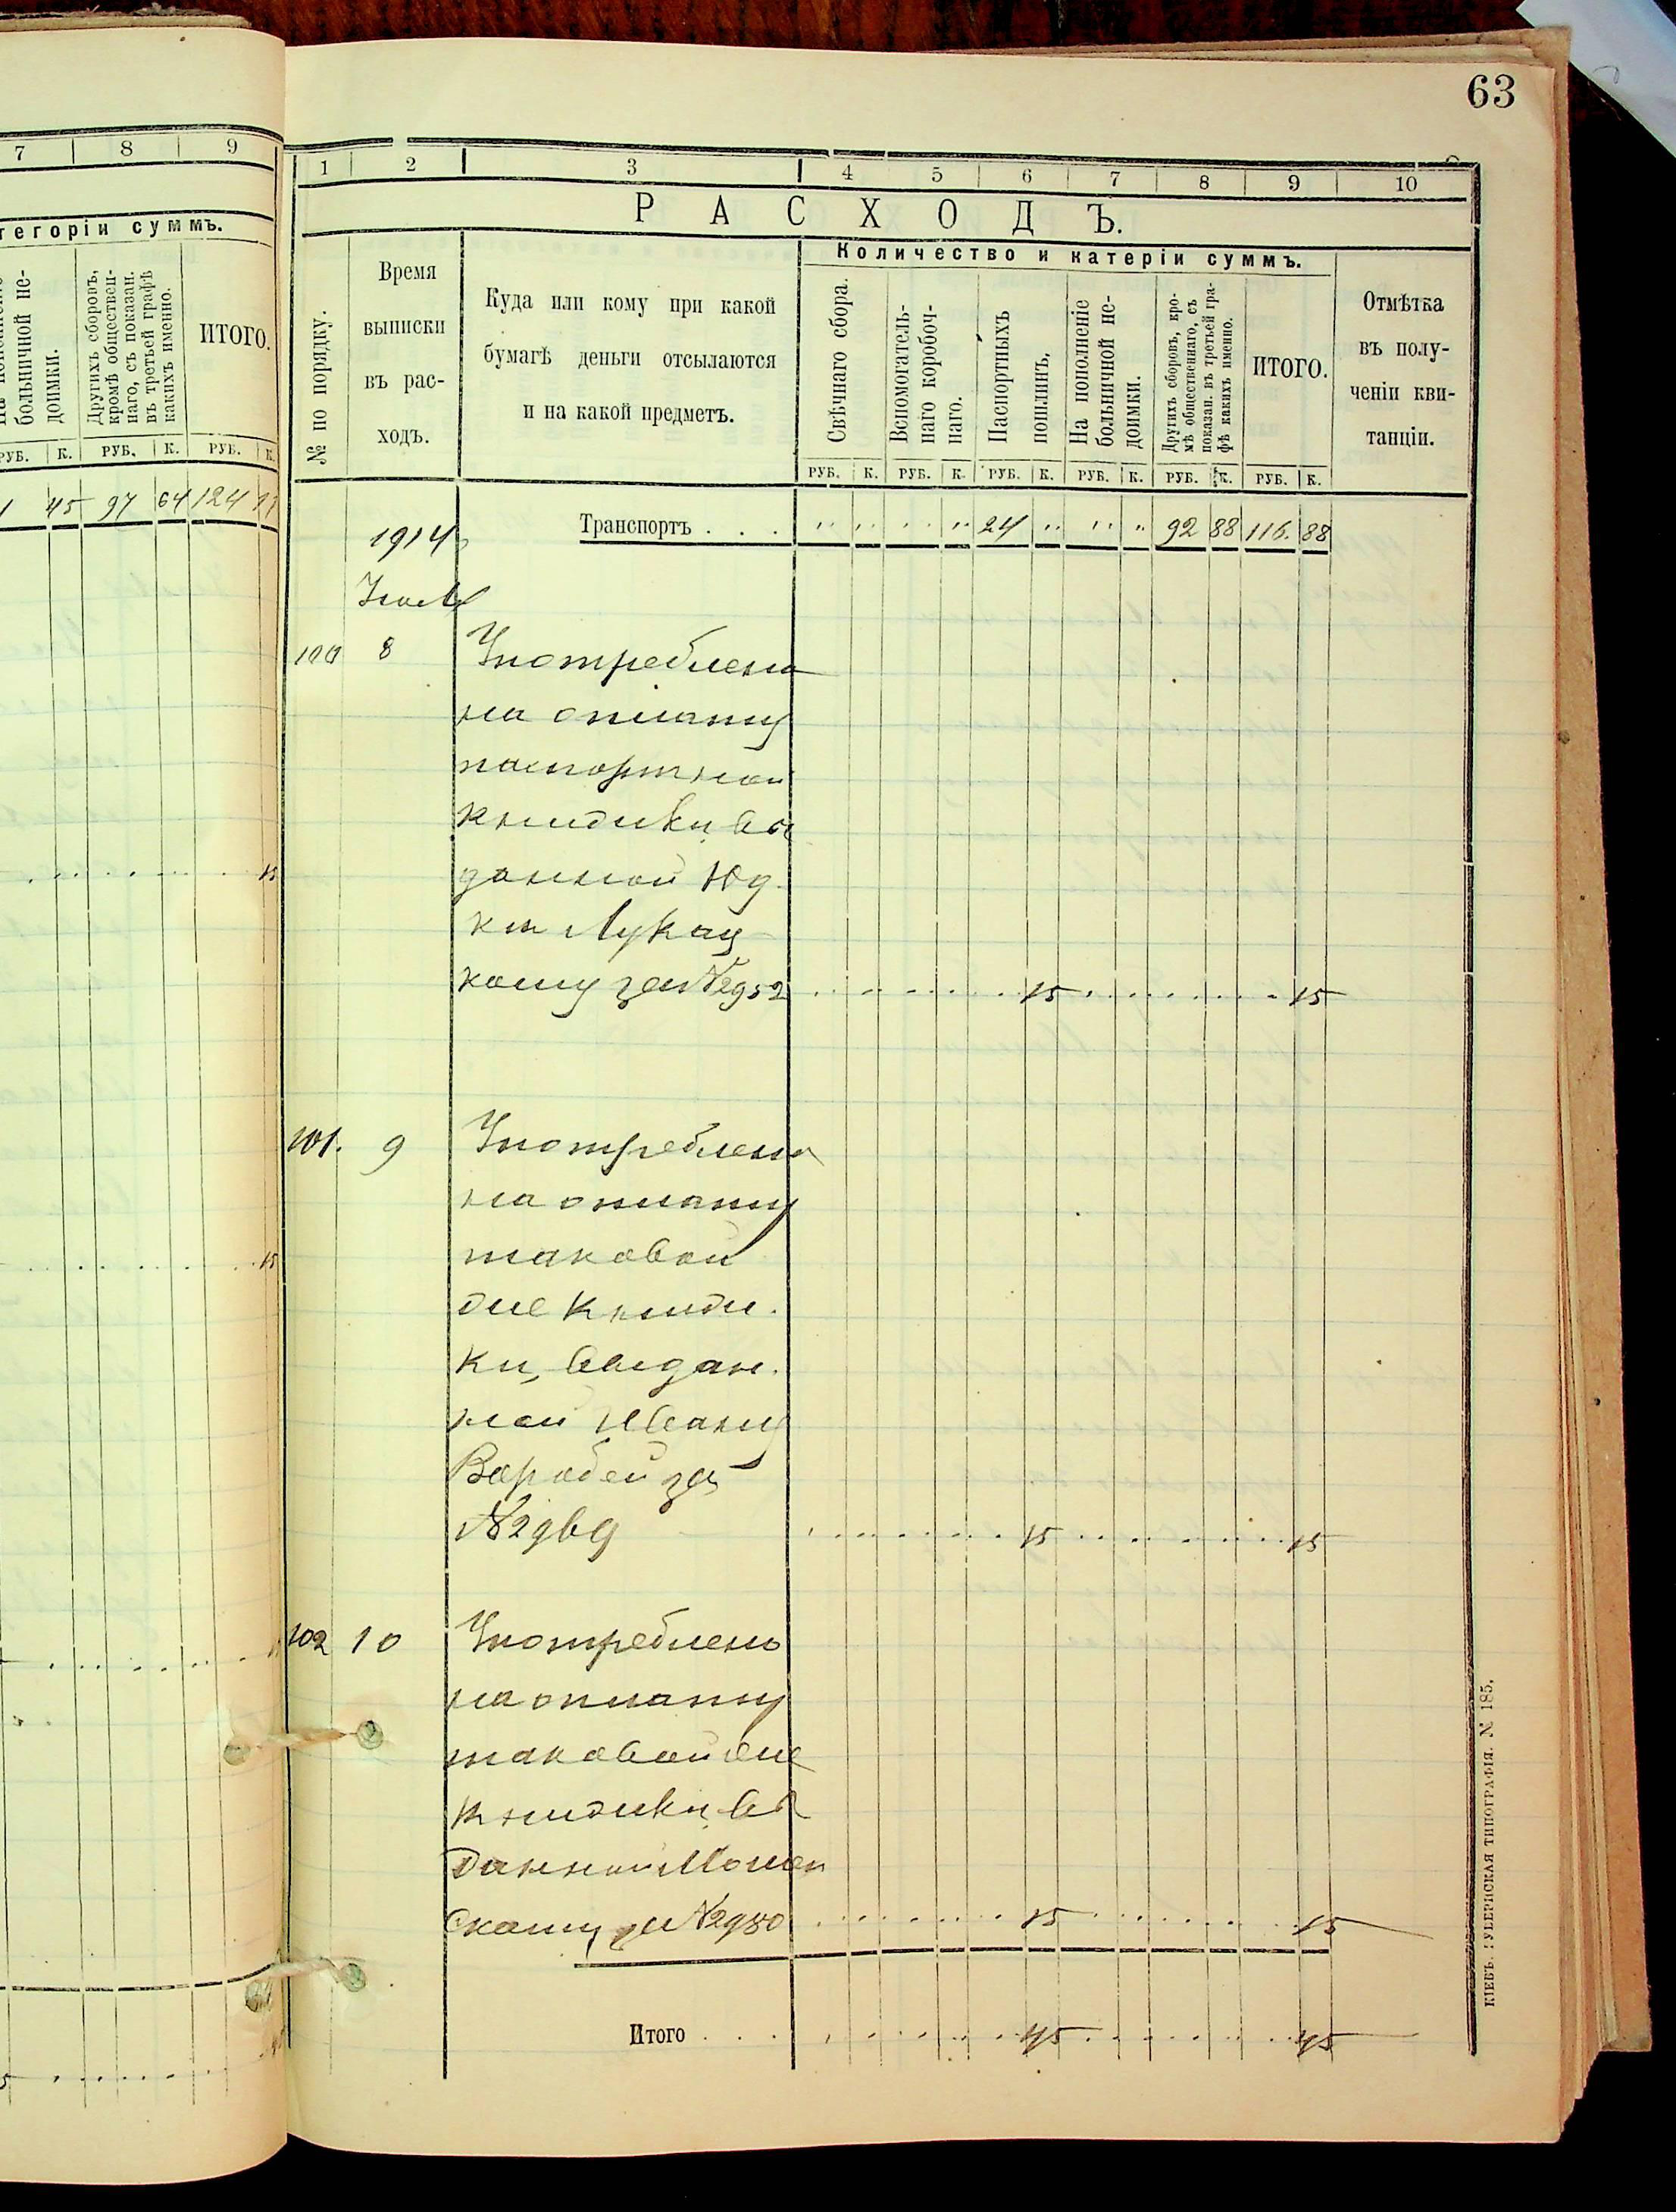 63
7 8 9
тегоріи суммъ.
больничной не-
доимки.
Другихъ сборовъ,
кромѣ обществен-
наго, съ показан.
въ третьей графѣ
какихъ именно.
ИТОГО.
РУБ. К. РУБ. К. РУБ. К.
45 97 64 124
1 2 3 4 5 6 7 8 9 10
РАСХОДЪ.
№ по порядку.
Время
выписки
въ рас-
ходъ.
Куда или кому при какой
бумагѣ деньги отсылаются
и на какой предметъ.
Количество и катеріи суммъ.
Свѣчнаго сбора.
Вспомогатель-
наго коробоч-
наго.
Паспортныхъ
пошлинъ.
На пополненіе
больничной не-
доимки.
Другихъ сборовъ, кро-
мѣ общественнаго, съ
показан. въ третьей гра-
фѣ какихъ именно.
ИТОГО.
Отмѣтка
въ полу-
ченіи кви-
танціи.
РУБ. К. РУБ. К. РУБ. К. РУБ. К. РУБ. К. РУБ. К.
Транспортъ . . . 24 92 88 116. 88
1914
Іюль
100 8 Употреблено
на оплату
паспортной
книжки, вы
данной Юд-
кѣ Лукац
кому за № 952 15 15
101. 9 Употреблено
на оплату
таковой
же книж-
ки, выдан-
ной Ивану
Воробей за
№ 969 15 15
102 10 Употреблено
на оплату
таковой же
книжки, вы
данной
скому за № 980 15 15
Итого . . . 45 45
КІЕВЪ. ГУБЕРНСКАЯ ТИПОГРАФІЯ. № 185.